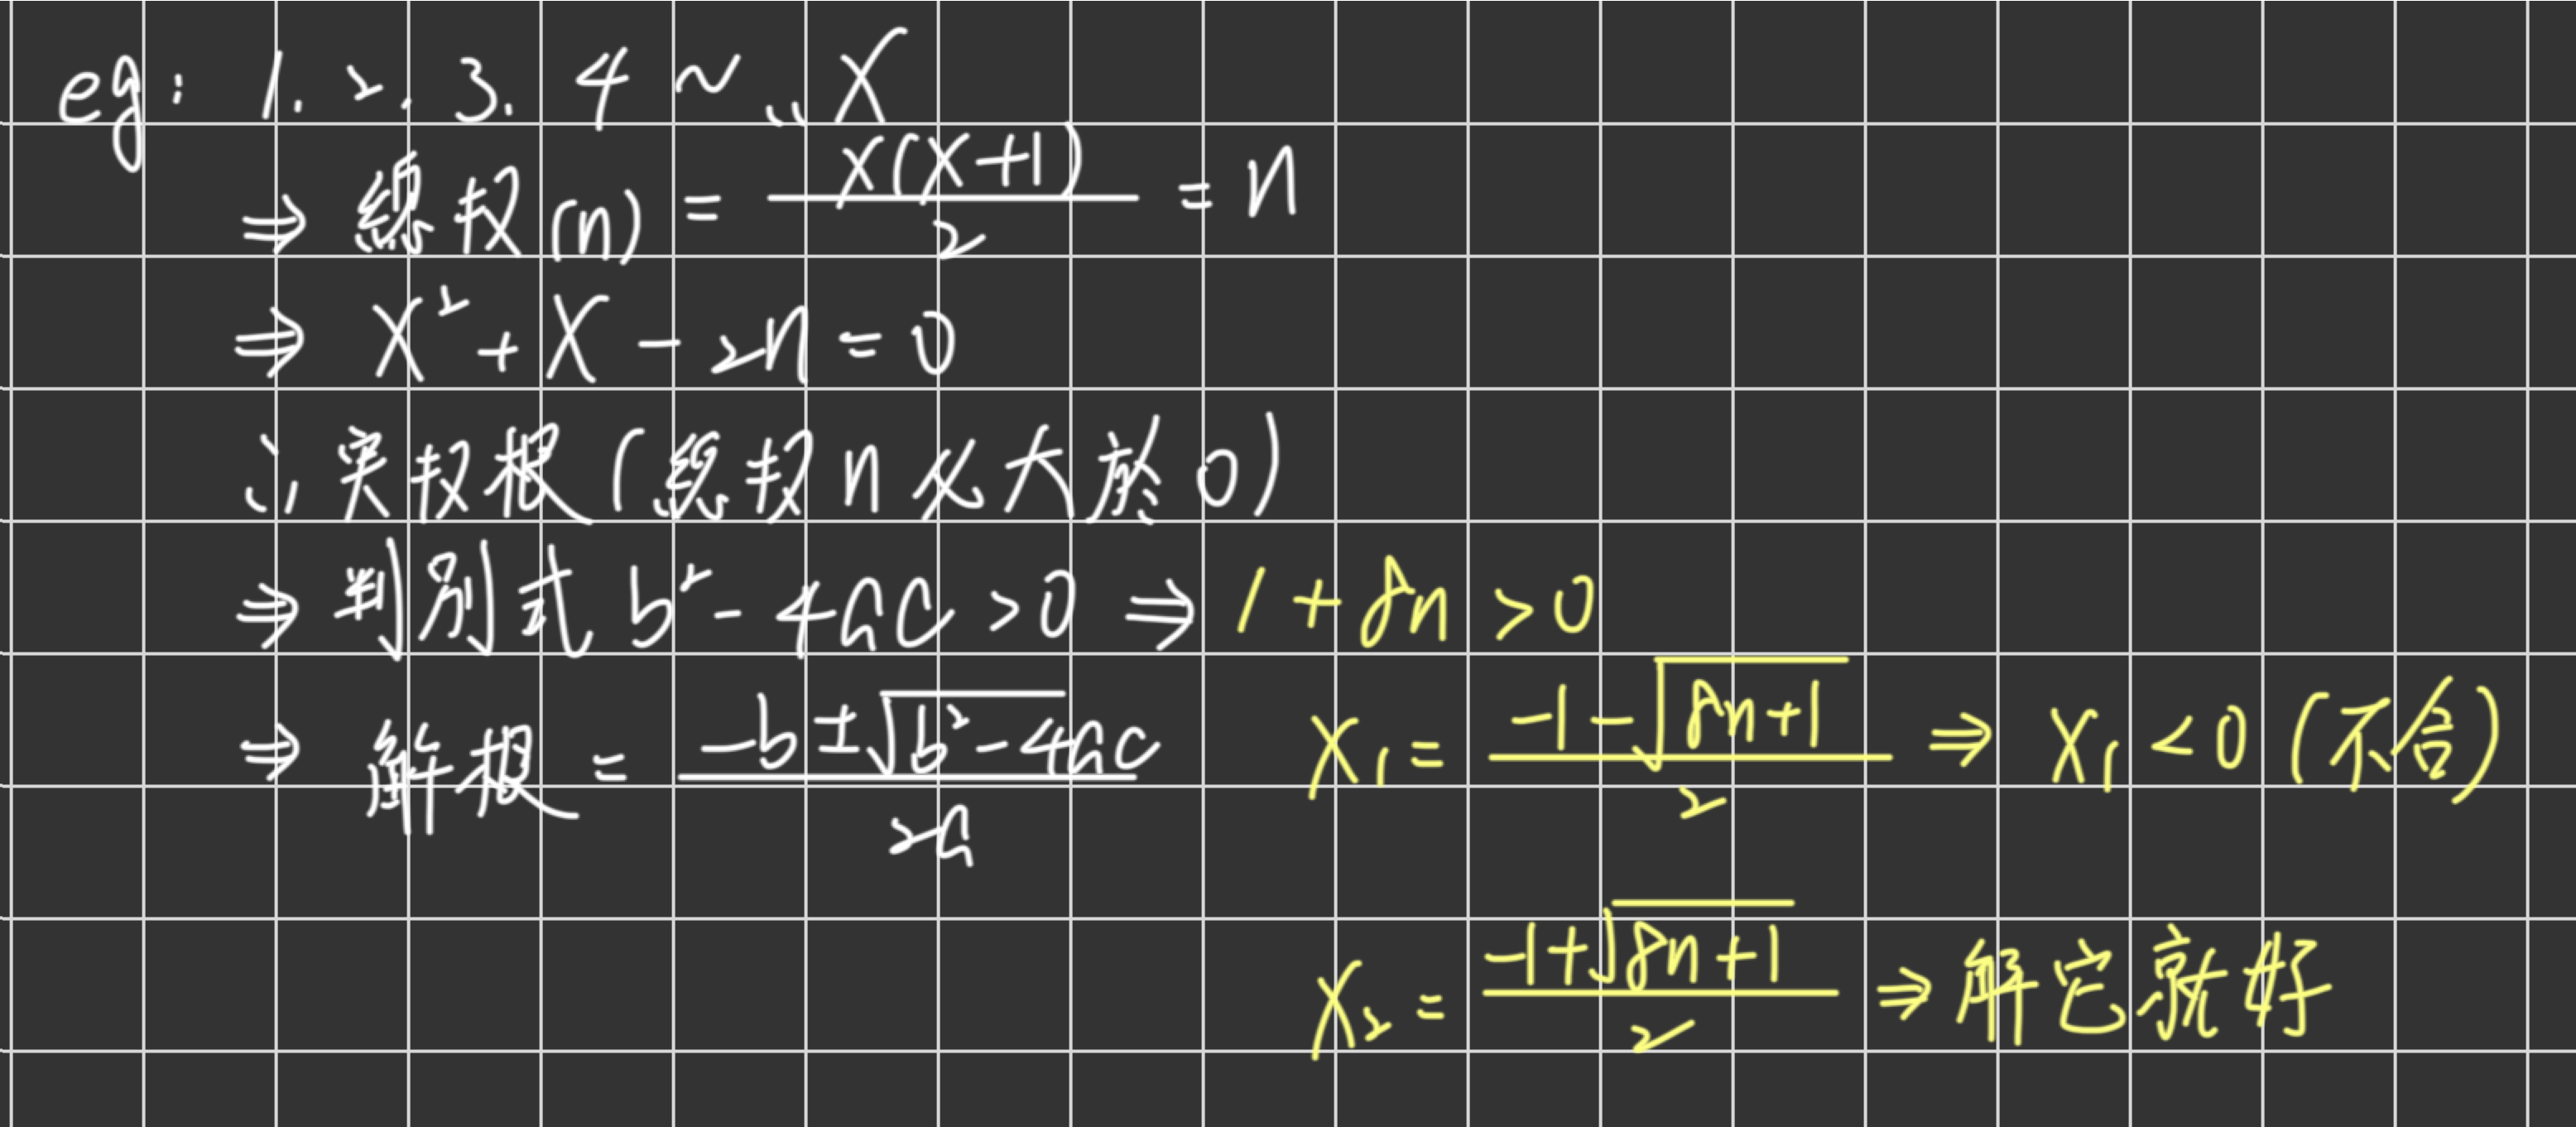 eg: 1. 2. 3. 4 ~ ... X
⇒ 總数(n) = X(X+1)/2 = n
⇒ X² + X - 2n = 0
∴ 実数根 (總数 n 必大於 0)
⇒ 判別式 b² - 4ac > 0 ⇒ 1 + 8n > 0
⇒ 解根 = (-b ± √(b² - 4ac))/2a
X₁ = (-1 - √(8n+1))/2 ⇒ X₁ < 0 (不合)
X₂ = (-1 + √(8n+1))/2 ⇒ 解它就好